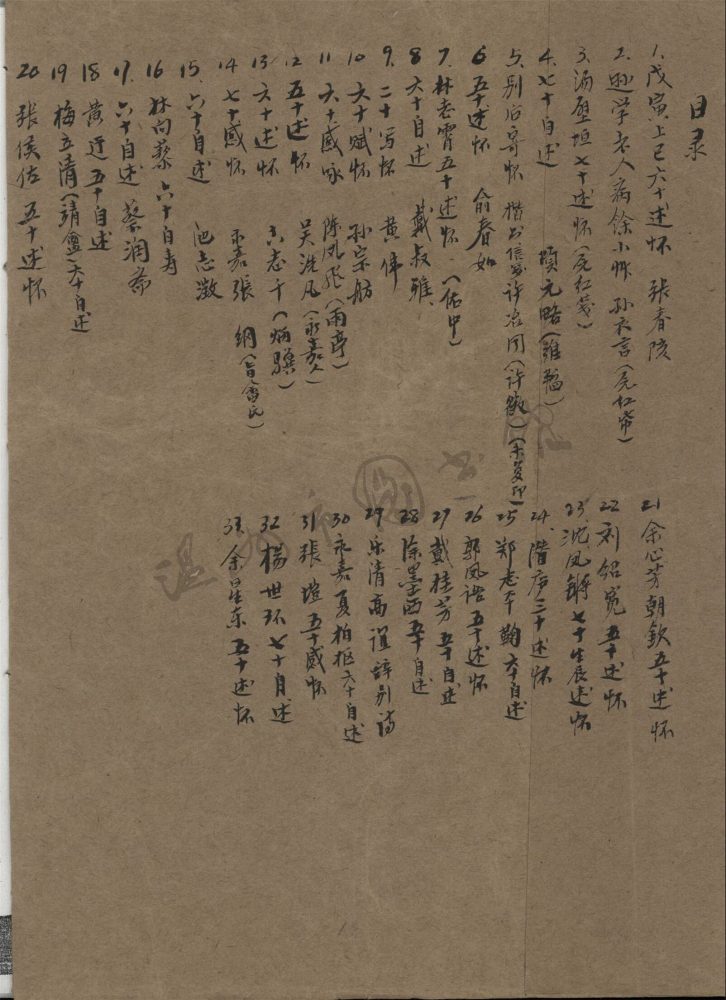 目录
1. 戊寅上巳六十述怀 张春陔
2. 逊学老人病馀小草 孙衣言(尾红带)
3. 汤壁垣七十述怀(尾红笺)
4. 七十自述 项元晒(维韬)
5. 别后寄怀 楷书信笺 许冶同(许徽)(未复印)
6 五十述怀 俞春如
7. 林老霄五十述怀 (佑中)
8 六十自述 戴叔雅
9. 二十写怀 黄伟
10 六十赋怀 孙宗舫
11 六十感咏 陈凤飞(雨亭)
12 五十述怀 吴洗凡(永嘉人)
13 六十述怀 志千(炳骥)
14 七十感怀 永嘉张纲
15. 六十自述 池志澂
16 林向藜 六十自寿
17. 六十自述 蔡润斋
18 黄迂五十自述
19 梅立清(靖盦)六十自述
20 张侯佐 五十述怀
21 余心芳朝钦五十述怀
22 刘绍宽五十述怀
23 沈凤锵七十生辰述怀
24 阶序三十述怀
25 郑志平鞠六十自述
26 郭凤诰五十述怀
27 戴桂芳五十自述
28 徐墨西五十自述
29 乐清高谊辞别诗
30 永嘉夏柏枢六十自述
31 张堦五十感怀
32 杨世环七十自述
33 余星东五十述怀
温州市图书馆